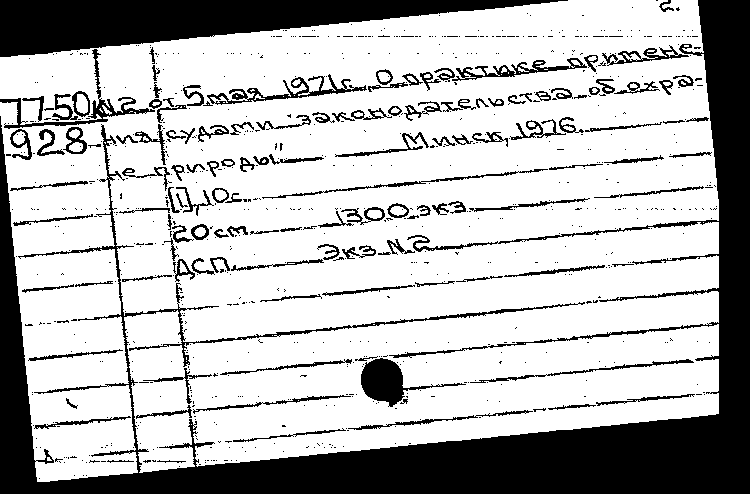 2.
77-50 К N2 от 5 мая 1971 г. „О практике примене-
928 ния судами законодательства об охра-
не природы" Минск, 1976.
[1], 10 с.
20 см. 1300 экз.
ДСП. Экз. N2